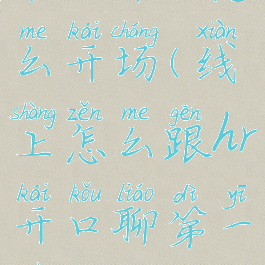 me kāi chǎng xiàn
么开场(线
shàng zěn me gēn
上怎么跟hr
kāi kǒu liáo dì yī
开口聊第一